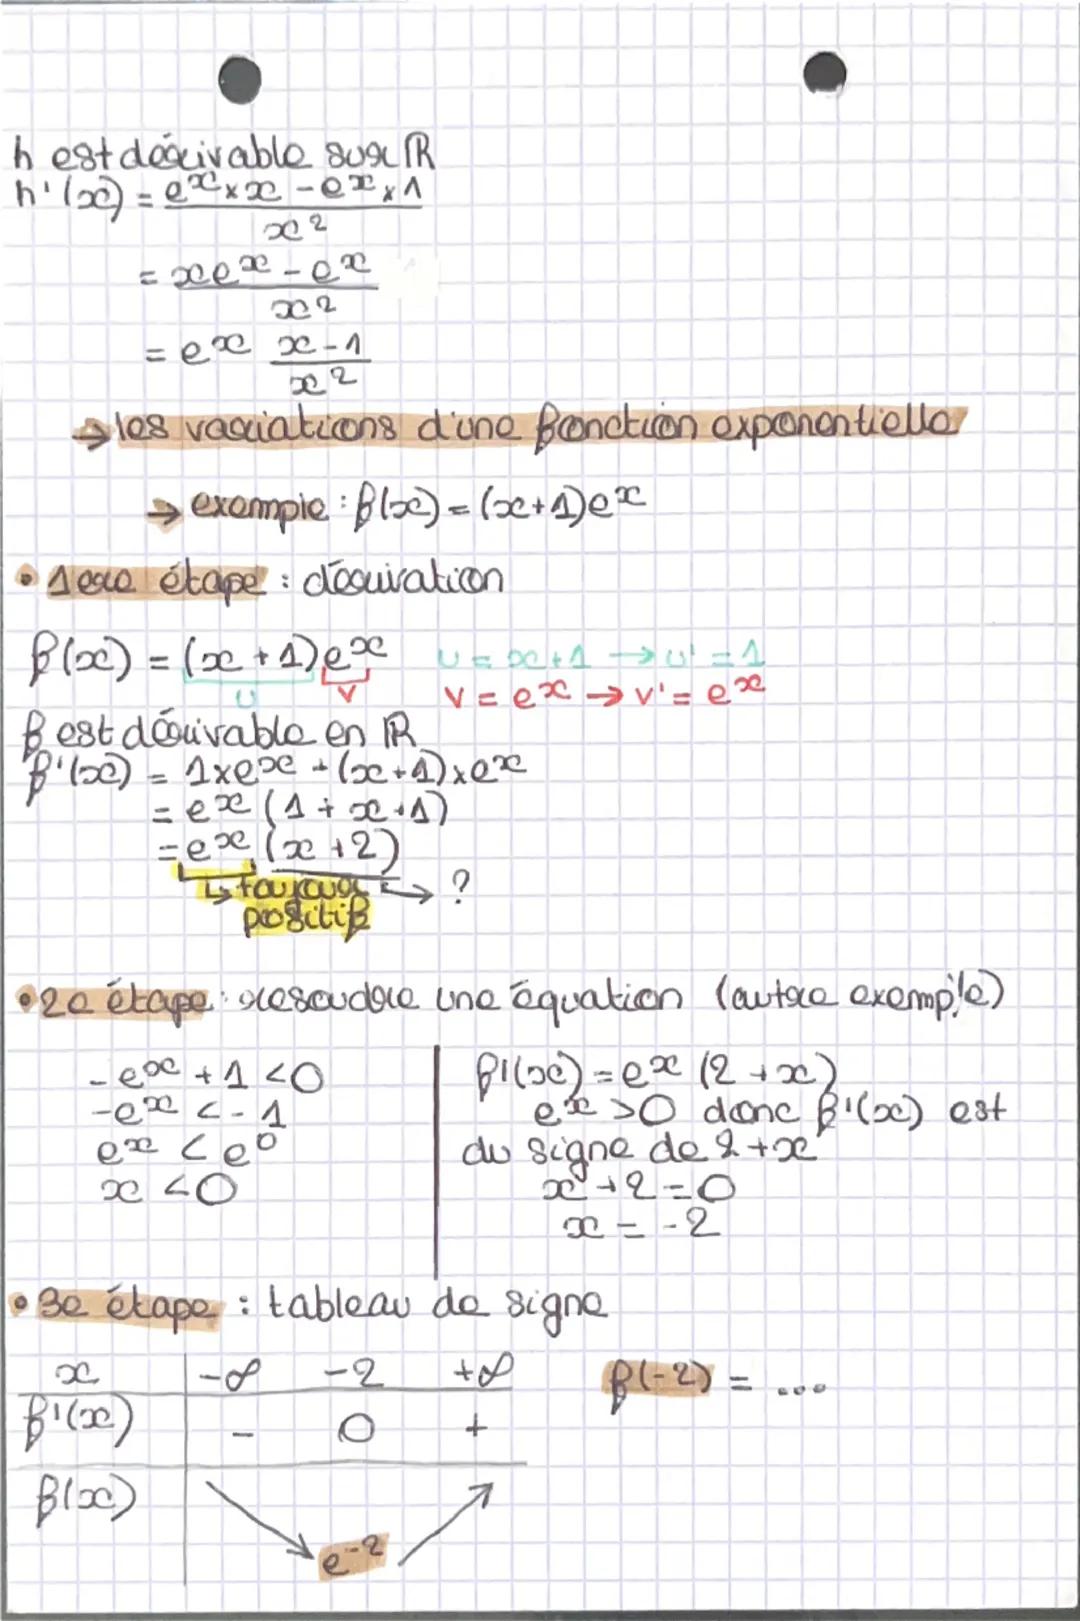 h est dérivable sur ℝ
h'(x) = (eˣ × x - eˣ × 1) / x²
= (xeˣ - eˣ) / x²
= eˣ (x-1) / x²
→ les variations d'une fonction exponentielle
→ exemple : f(x) = (x+1)eˣ
• 1ere étape : dérivation
f(x) = (x+1)eˣ u = x+1 → u' = 1
u v v = eˣ → v' = eˣ
f est dérivable en ℝ
f'(x) = 1×eˣ + (x+1)×eˣ
= eˣ (1 + x +1)
= eˣ (x +2)
↳ toujours positif → ?
• 2e étape : resoudre une équation (autre exemple)
-eˣ + 1 < 0
-eˣ < -1
eˣ < e⁰
x < 0
f'(x) = eˣ (2 + x)
eˣ > 0 donc f'(x) est
du signe de 2 + x
x + 2 = 0
x = -2
• 3e étape : tableau de signe
x -∞ -2 +∞ f(-2) = ...
f'(x) - 0 +
f(x)
e⁻²